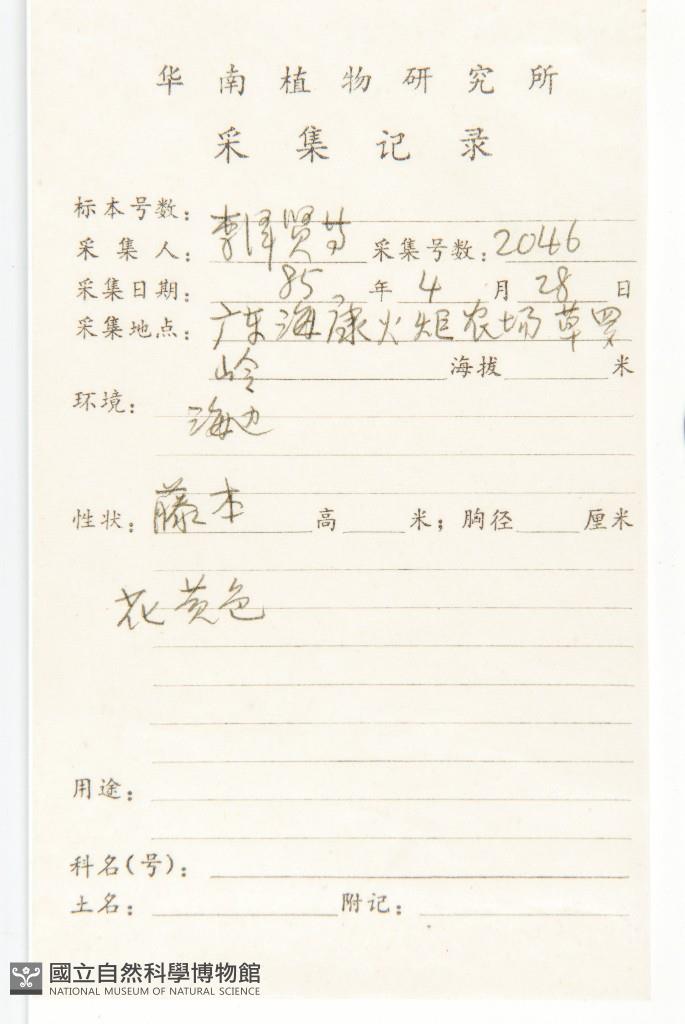 华南植物研究所
采集记录
标本号数：
采集人：李泽贤等 采集号数：2046
采集日期：85年4月28日
采集地点：广东海康火炬农场草罗
岭 海拔 米
环境：
海边
性状：藤本 高 米；胸径 厘米
花黄色
用途：
科名(号)：
土名： 附记：
國立自然科學博物館
NATIONAL MUSEUM OF NATURAL SCIENCE